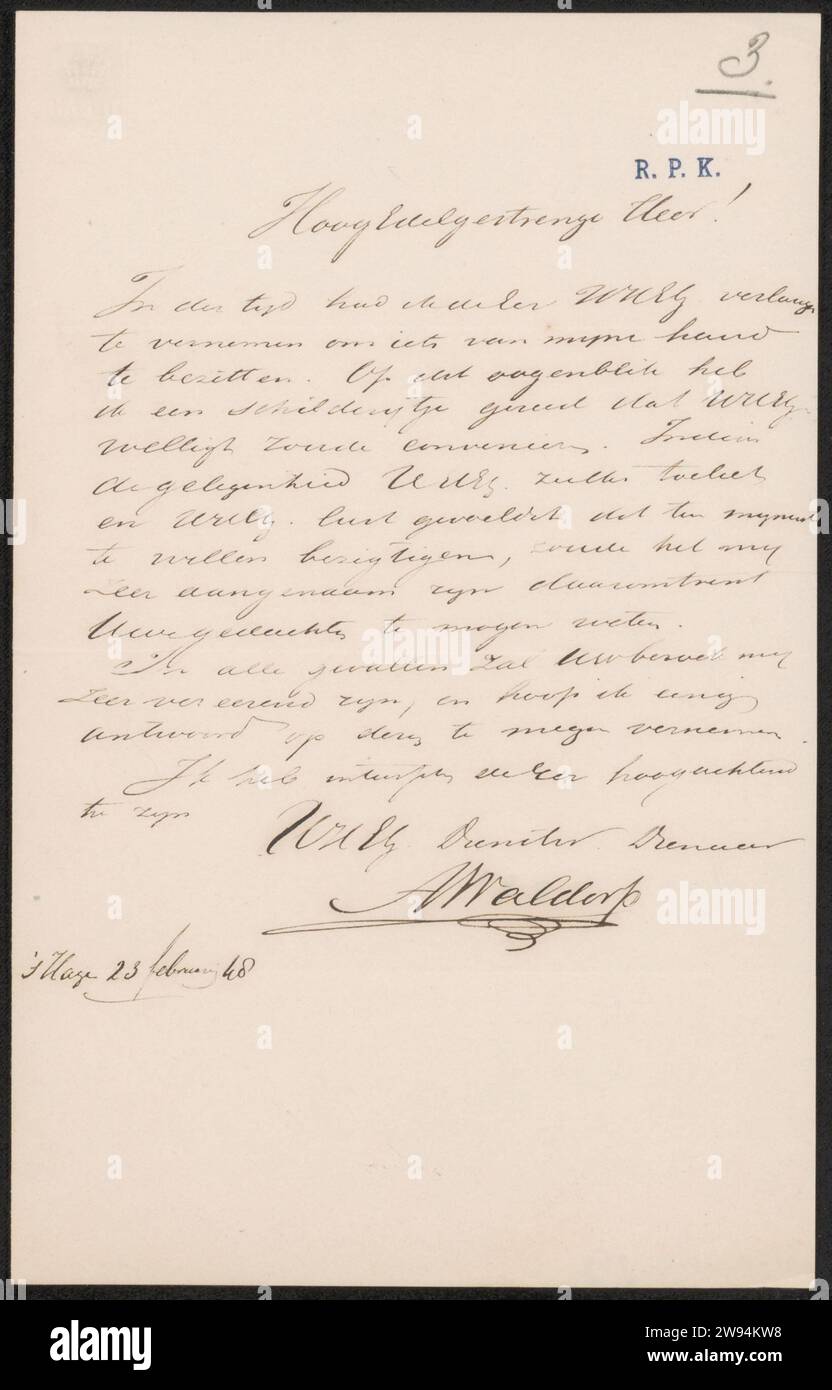 3.
R. P. K.
HoogEdelgestrenge Heer!
In der tijd had ik de Eer UHEG. verlangen
te vernemen om iets van mijne hand
te bezitten. Op dit oogenblik heb
ik een schilderijtje gereed dat UHEG.
welligt zoude convenieren. Indien
de gelegenheid UHEG. zulks toeliet
en UHEG. lust gevoeldet dat ten mijnent
te willen bezigtigen, zoude het mij
zeer aangenaam zijn daaromtrent
Uwe gedachten te mogen weten.
In alle gevallen zal Uw bezoek mij
zeer vereerend zijn, en hoop ik eenig
antwoord op deze te mogen vernemen.
Ik heb intusschen de Eer hoogachtend
te zijn
UHEG. Dienstw. Dienaar
AWaldorp
'sHage 23 februarij 48
alamy
alamy
alamy
alamy
alamy
Image ID: 2W94KW8
www.alamy.com